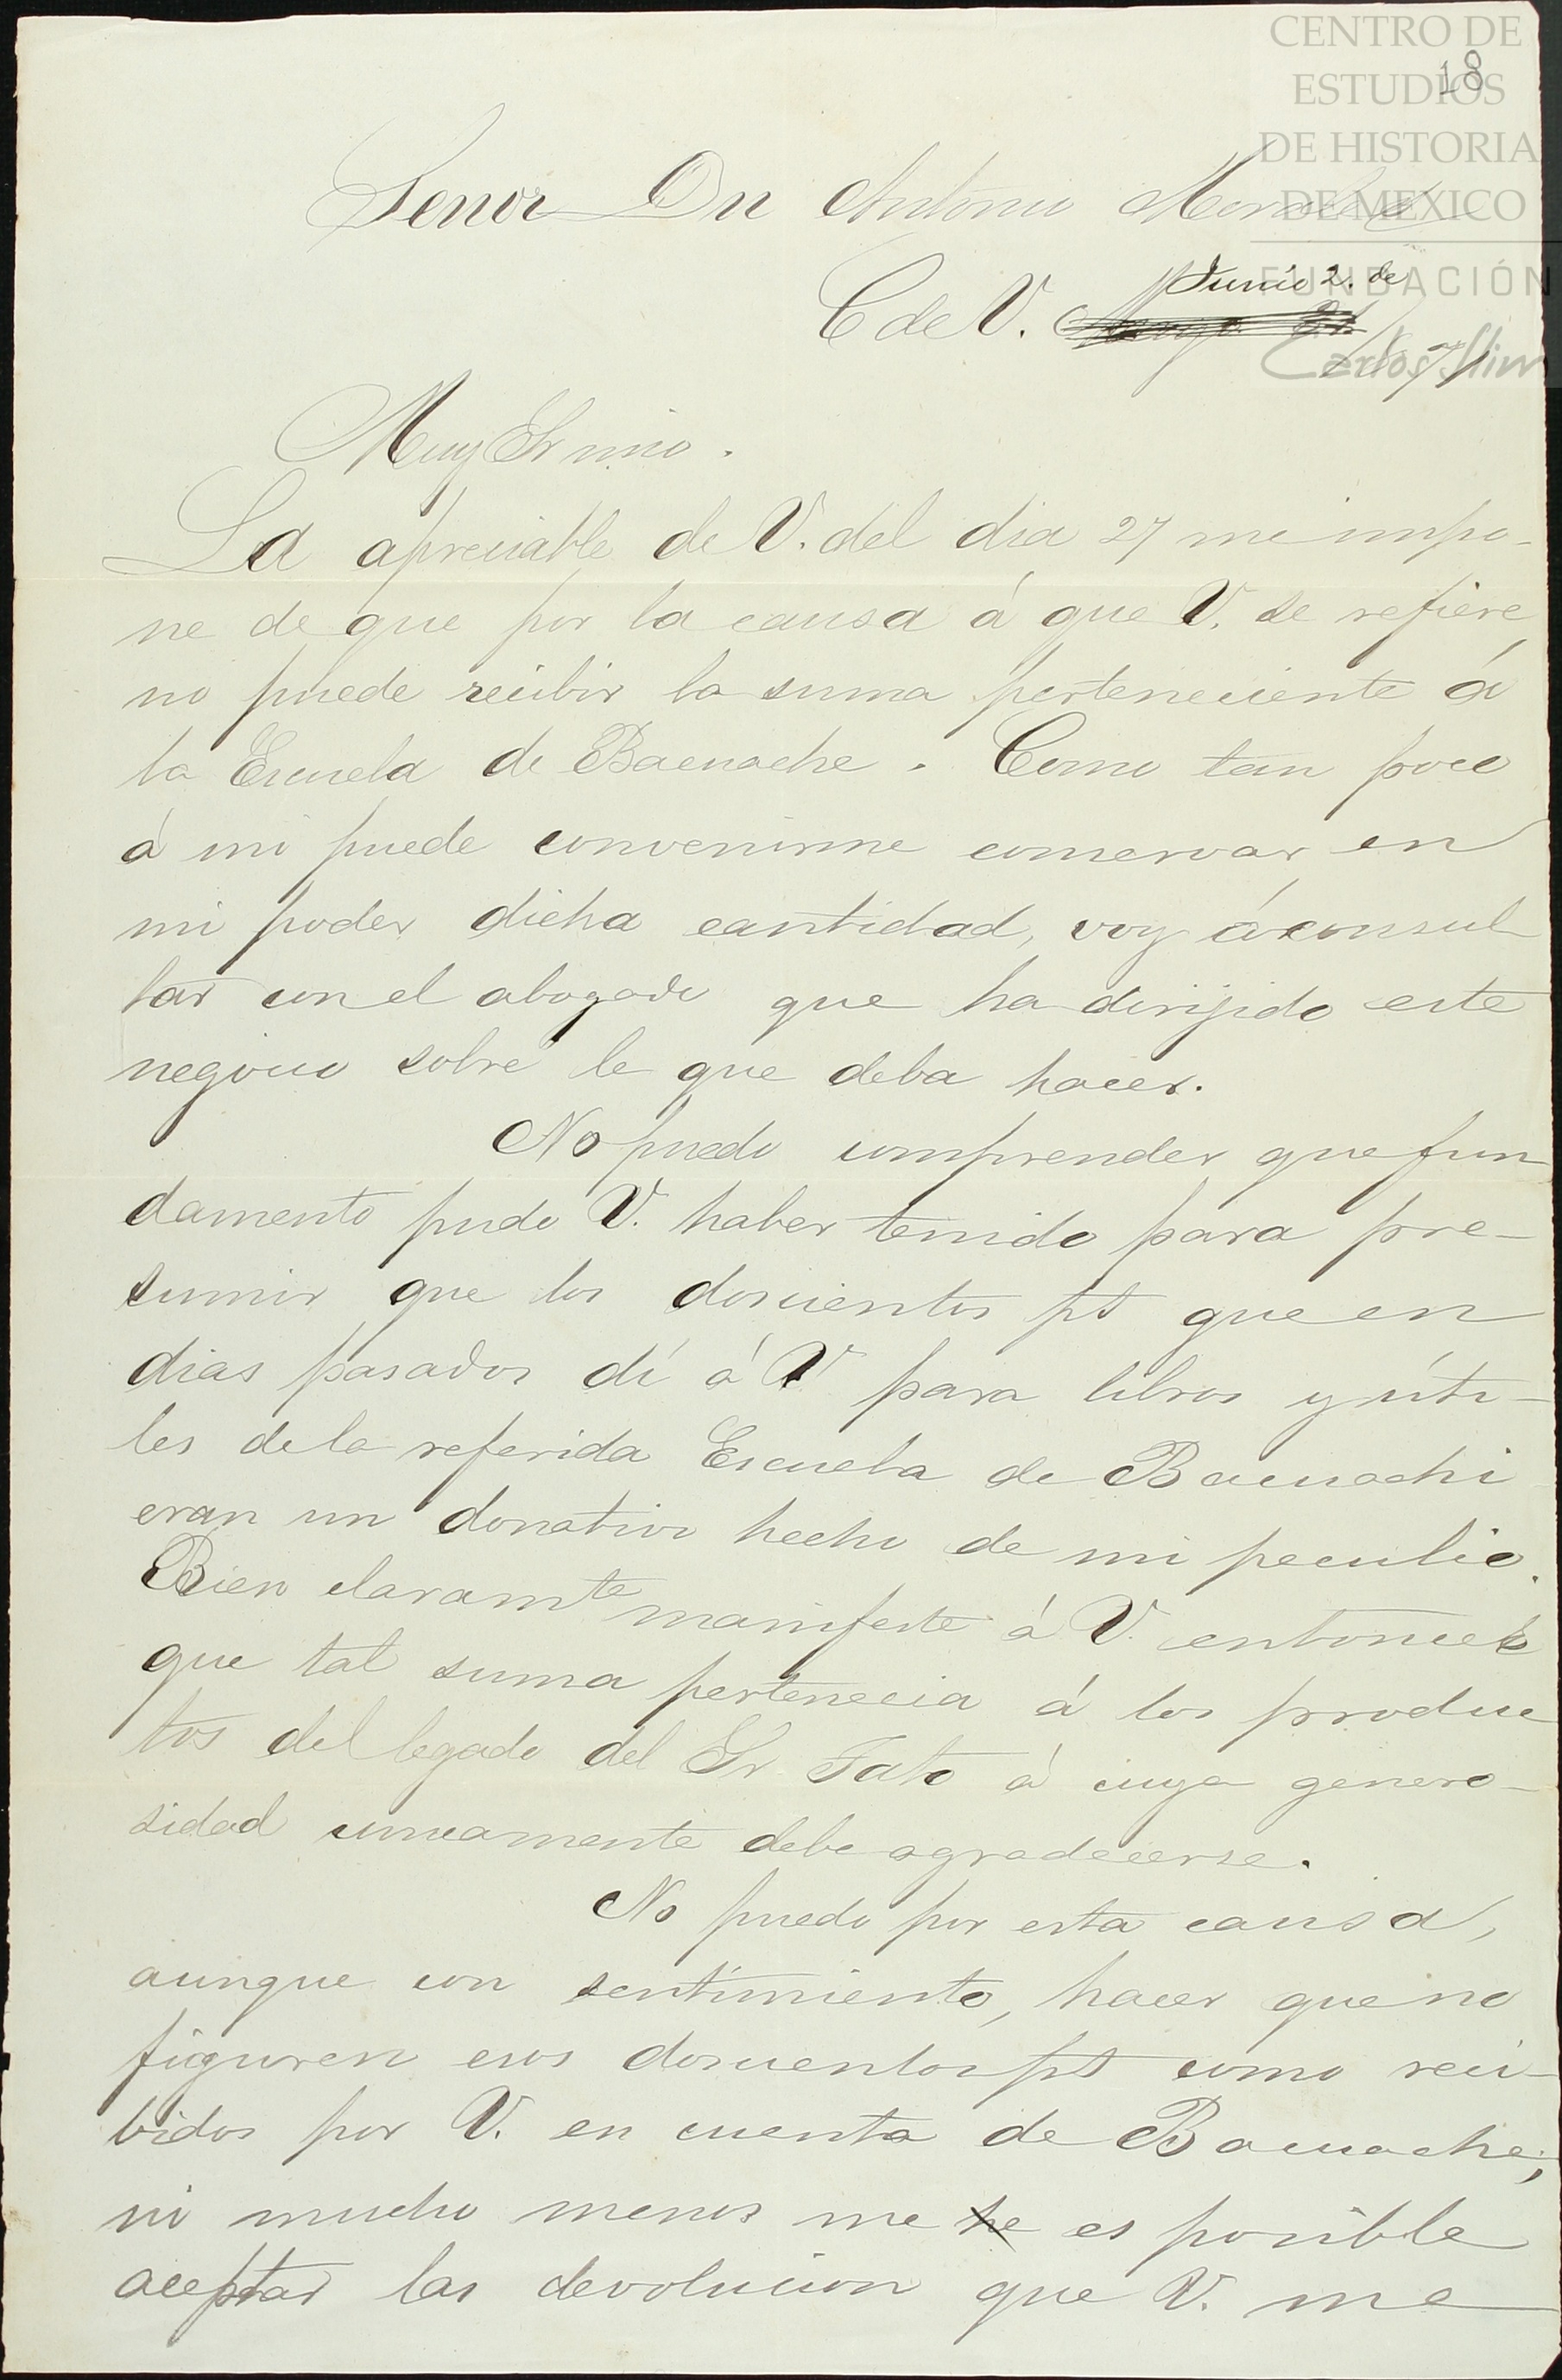 CENTRO DE
ESTUDIOS
DE HISTORIA
DE MEXICO
FUNDACIÓN
Carlos Slim
18
Señor Dn Antonio Morales
C de V. Junio 2. de
1871
Muy Sr mio.
La apreciable de V. del dia 27 me impo-
ne de que por la causa á que V. se refiere,
no puede recibir la suma perteneciente á
la Escuela de Bacuache. Como tan poco
á mi puede convenirme conservar en
mi poder dicha cantidad, voy á consul-
tar con el abogado que ha dirijido este
negocio sobre lo que deba hacer.
No puedo comprender que fun
damento pudo V. haber tenido para pre-
sumir que los doscientos ps que en
dias pasados dí á V para libros y úti-
les de la referida Escuela de Bacuachi
eran un donativo hecho de mi peculio.
Bien claramte manifesté á V. entonces
que tal suma pertenecia á los produc
tos del legado del Sr. Tato á cuya genero-
sidad unicamente debe agradecerse.
No puedo por esta causa,
aunque con sentimiento, hacer que no
figuren esos doscientos ps como reci-
bidos por V. en cuenta de Bacuache;
ni mucho menos me he es posible
aceptar las devolucion que V. me